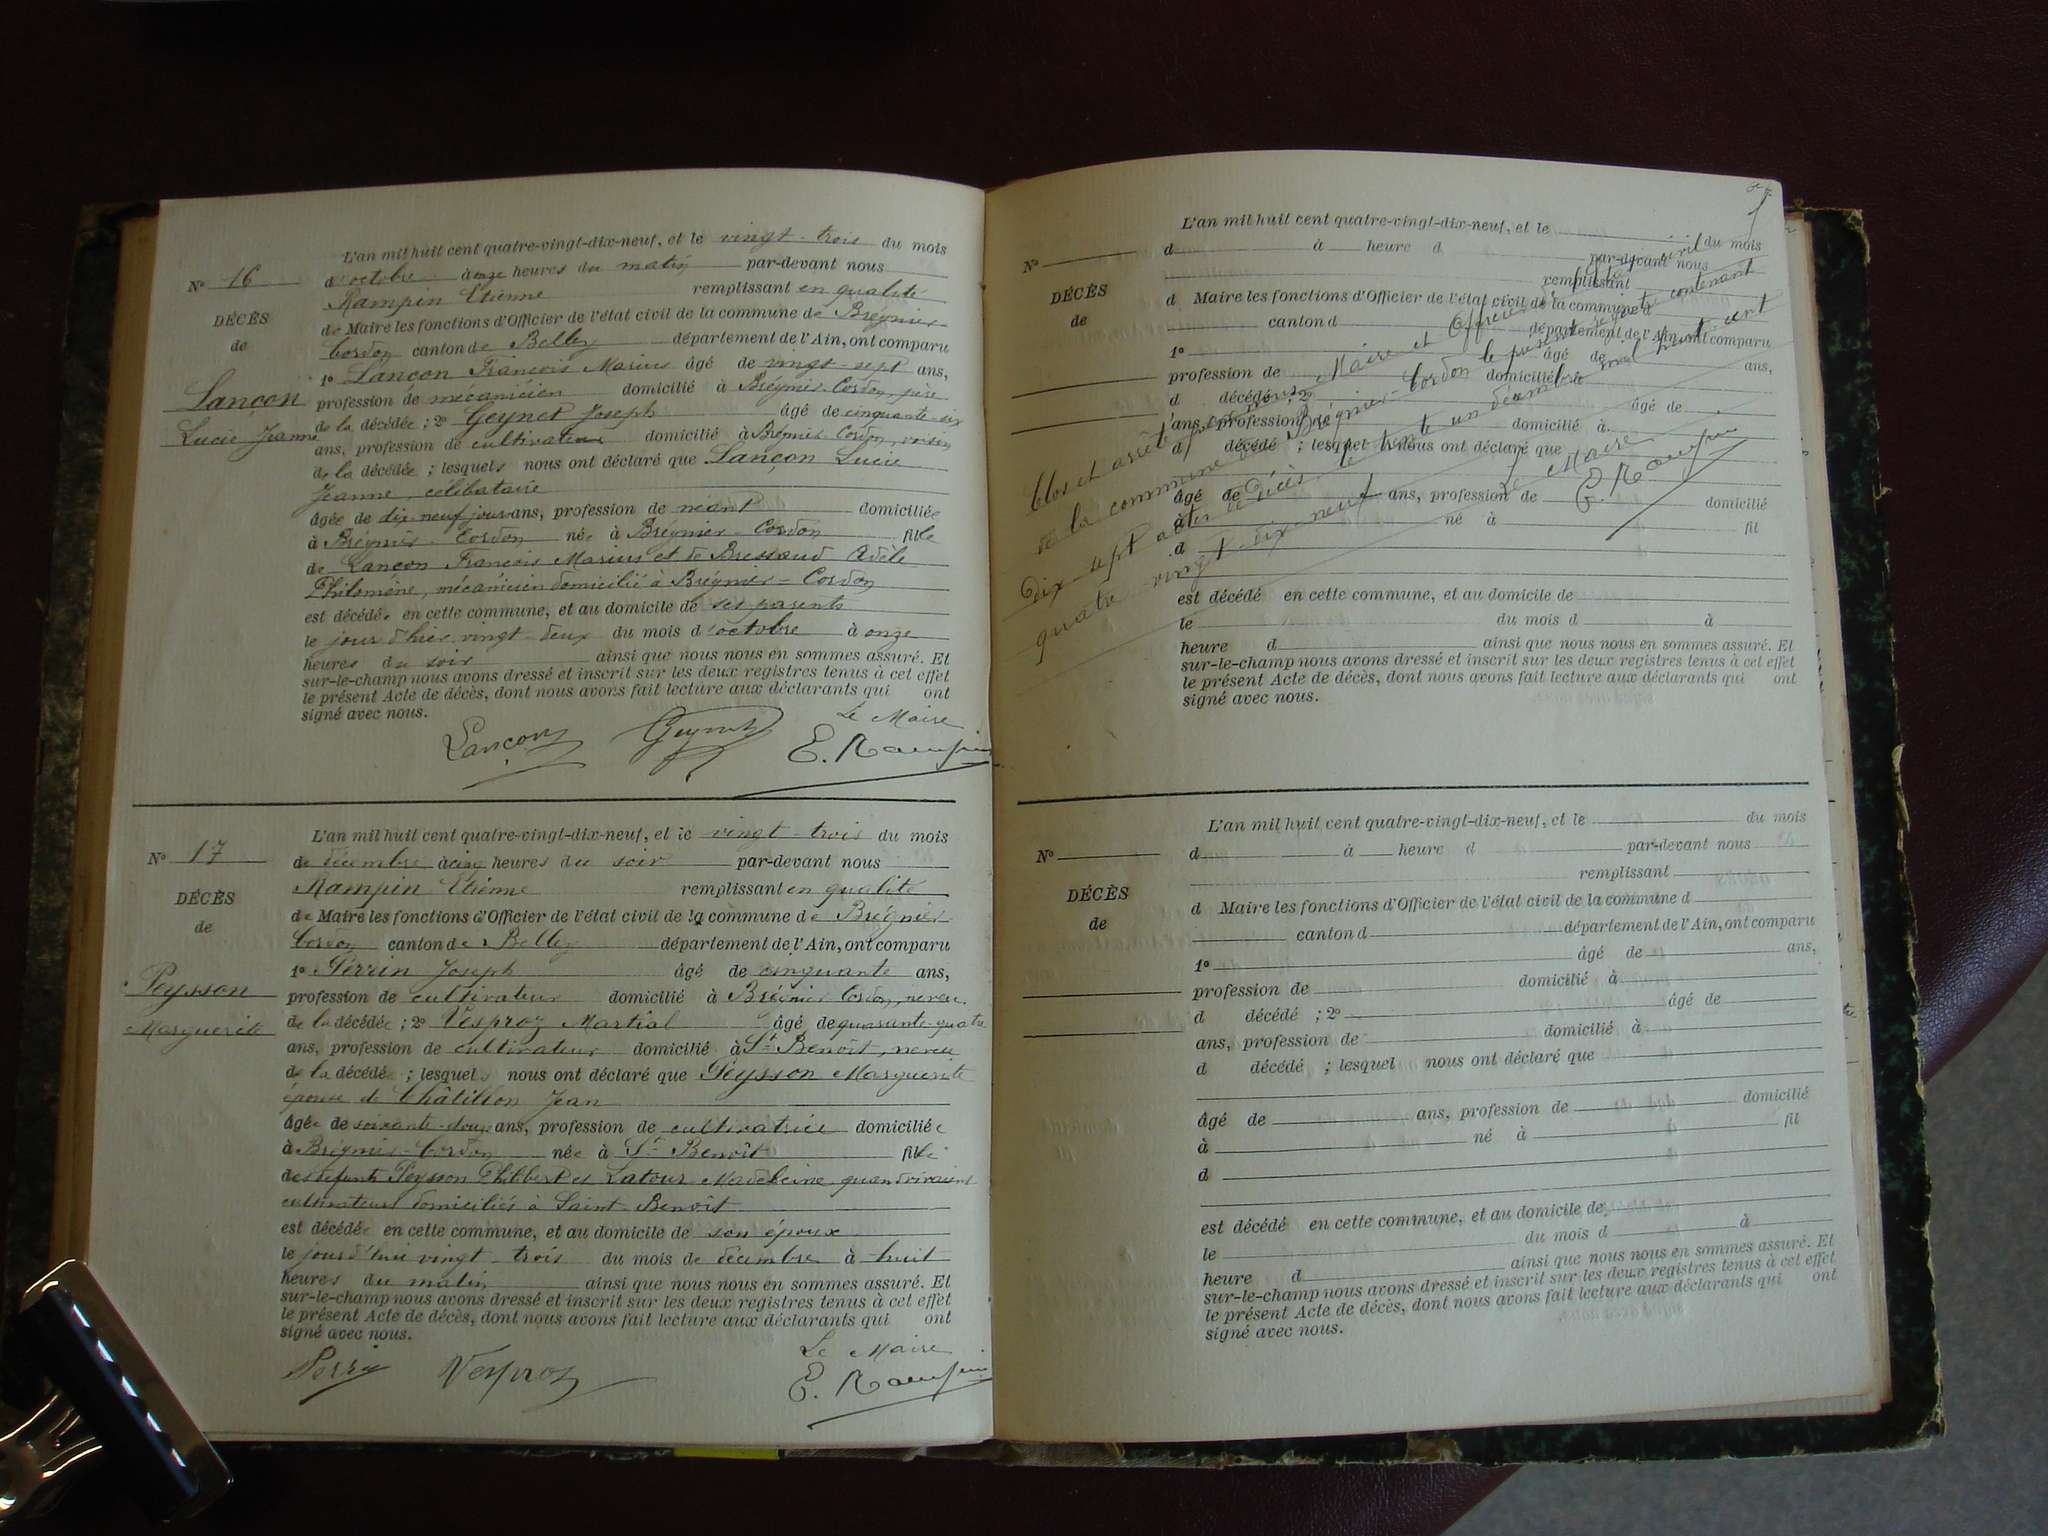 L'an mil huit cent quatre-vingt-dix-neuf, et le vingt-trois du mois
No 16 d'octobre à onze heures du matin par-devant nous
Rampin Etienne remplissant en qualité
DÉCÈS
de Maire les fonctions d'Officier de l'état civil de la commune de Brégnier-
de
Cordon canton de Belley département de l'Ain, ont comparu
1o Lançon François Marius âgé de vingt-sept ans,
Lançon
profession de mécanicien domicilié à Brégnier-Cordon, père
de la décédée ; 2o Geynet Joseph âgé de cinquante-six
Lucie Jeanne
ans, profession de cultivateur domicilié à Brégnier-Cordon, voisin
de la décédée ; lesquels nous ont déclaré que Lançon Lucie
Jeanne, célibataire
âgée de dix-neuf jours ans, profession de néant domiciliée
à Brégnier-Cordon née à Brégnier-Cordon fille
de Lançon François Marius et de Adèle
Philomène, mécanicien domicilié à Brégnier-Cordon
est décédée en cette commune, et au domicile de ses parents
le jour d'hier vingt-deux du mois d'octobre à onze
heures du soir ainsi que nous nous en sommes assuré. Et
sur-le-champ nous avons dressé et inscrit sur les deux registres tenus à cet effet
le présent Acte de décès, dont nous avons fait lecture aux déclarants qui ont
signé avec nous.
Le Maire
Lançon Geynet E. Rampin
L'an mil huit cent quatre-vingt-dix-neuf, et le vingt-trois du mois
No 17 de décembre à cinq heures du soir par-devant nous
Rampin Etienne remplissant en qualité
DÉCÈS
de Maire les fonctions d'Officier de l'état civil de la commune de Brégnier
de
Cordon canton de Belley département de l'Ain, ont comparu
1o Perrin Joseph âgé de cinquante ans,
Peysson
profession de cultivateur domicilié à Brégnier Cordon, neveu
de la décédée ; 2o Vesproz Martial âgé de quarante-quatre
Marguerite
ans, profession de cultivateur domicilié à St Benoît, neveu
de la décédée ; lesquels nous ont déclaré que Peysson Marguerite
épouse de Châtillon Jean
âgée de soixante-douze ans, profession de cultivatrice domiciliée
à Brégnier-Cordon née à St Benoît fille
des défunts Peysson Philibert et Latour Madeleine quand vivaient
cultivateurs domiciliés à Saint-Benoît
est décédée en cette commune, et au domicile de son époux
le jourd'hui vingt-trois du mois de décembre à huit
heures du matin ainsi que nous nous en sommes assuré. Et
sur-le-champ nous avons dressé et inscrit sur les deux registres tenus à cet effet
le présent Acte de décès, dont nous avons fait lecture aux déclarants qui ont
signé avec nous.
Le Maire
Perrin Vesproz E. Rampin
L'an mil huit cent quatre-vingt-dix-neuf, et le du mois
No d à heure d par-devant nous
remplissant
DÉCÈS
d Maire les fonctions d'Officier de l'état civil de la commune d
de
canton d département de l'Ain, ont comparu
1o âgé de ans,
profession de domicilié à
d décédé ; 2o âgé de
ans, profession de domicilié à
d décédé ; lesquel nous ont déclaré que
âgé de ans, profession de domicilié
à né à fil
d
est décédé en cette commune, et au domicile de
le du mois d à
heure d ainsi que nous nous en sommes assuré. Et
sur-le-champ nous avons dressé et inscrit sur les deux registres tenus à cet effet
le présent Acte de décès, dont nous avons fait lecture aux déclarants qui ont
signé avec nous.
Clos et arrêté par nous Maire et Officier de l'état civil
de la commune de Brégnier-Cordon le présent registre contenant
dix-sept actes de décès le trente un décembre mil huit cent
quatre vingt-dix-neuf
Le Maire
E. Rampin
L'an mil huit cent quatre-vingt-dix-neuf, et le du mois
No d à heure d par-devant nous
remplissant
DÉCÈS
d Maire les fonctions d'Officier de l'état civil de la commune d
de
canton d département de l'Ain, ont comparu
1o âgé de ans,
profession de domicilié à
d décédé ; 2o âgé de
ans, profession de domicilié à
d décédé ; lesquel nous ont déclaré que
âgé de ans, profession de domicilié
à né à fil
d
est décédé en cette commune, et au domicile de
le du mois d à
heure d ainsi que nous nous en sommes assuré. Et
sur-le-champ nous avons dressé et inscrit sur les deux registres tenus à cet effet
le présent Acte de décès, dont nous avons fait lecture aux déclarants qui ont
signé avec nous.